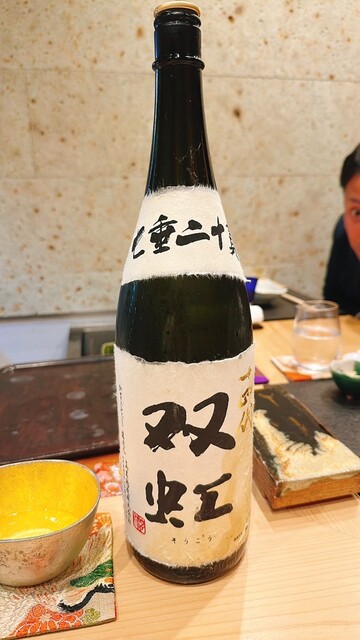 七垂二十貫
十四代
双虹
そうこう